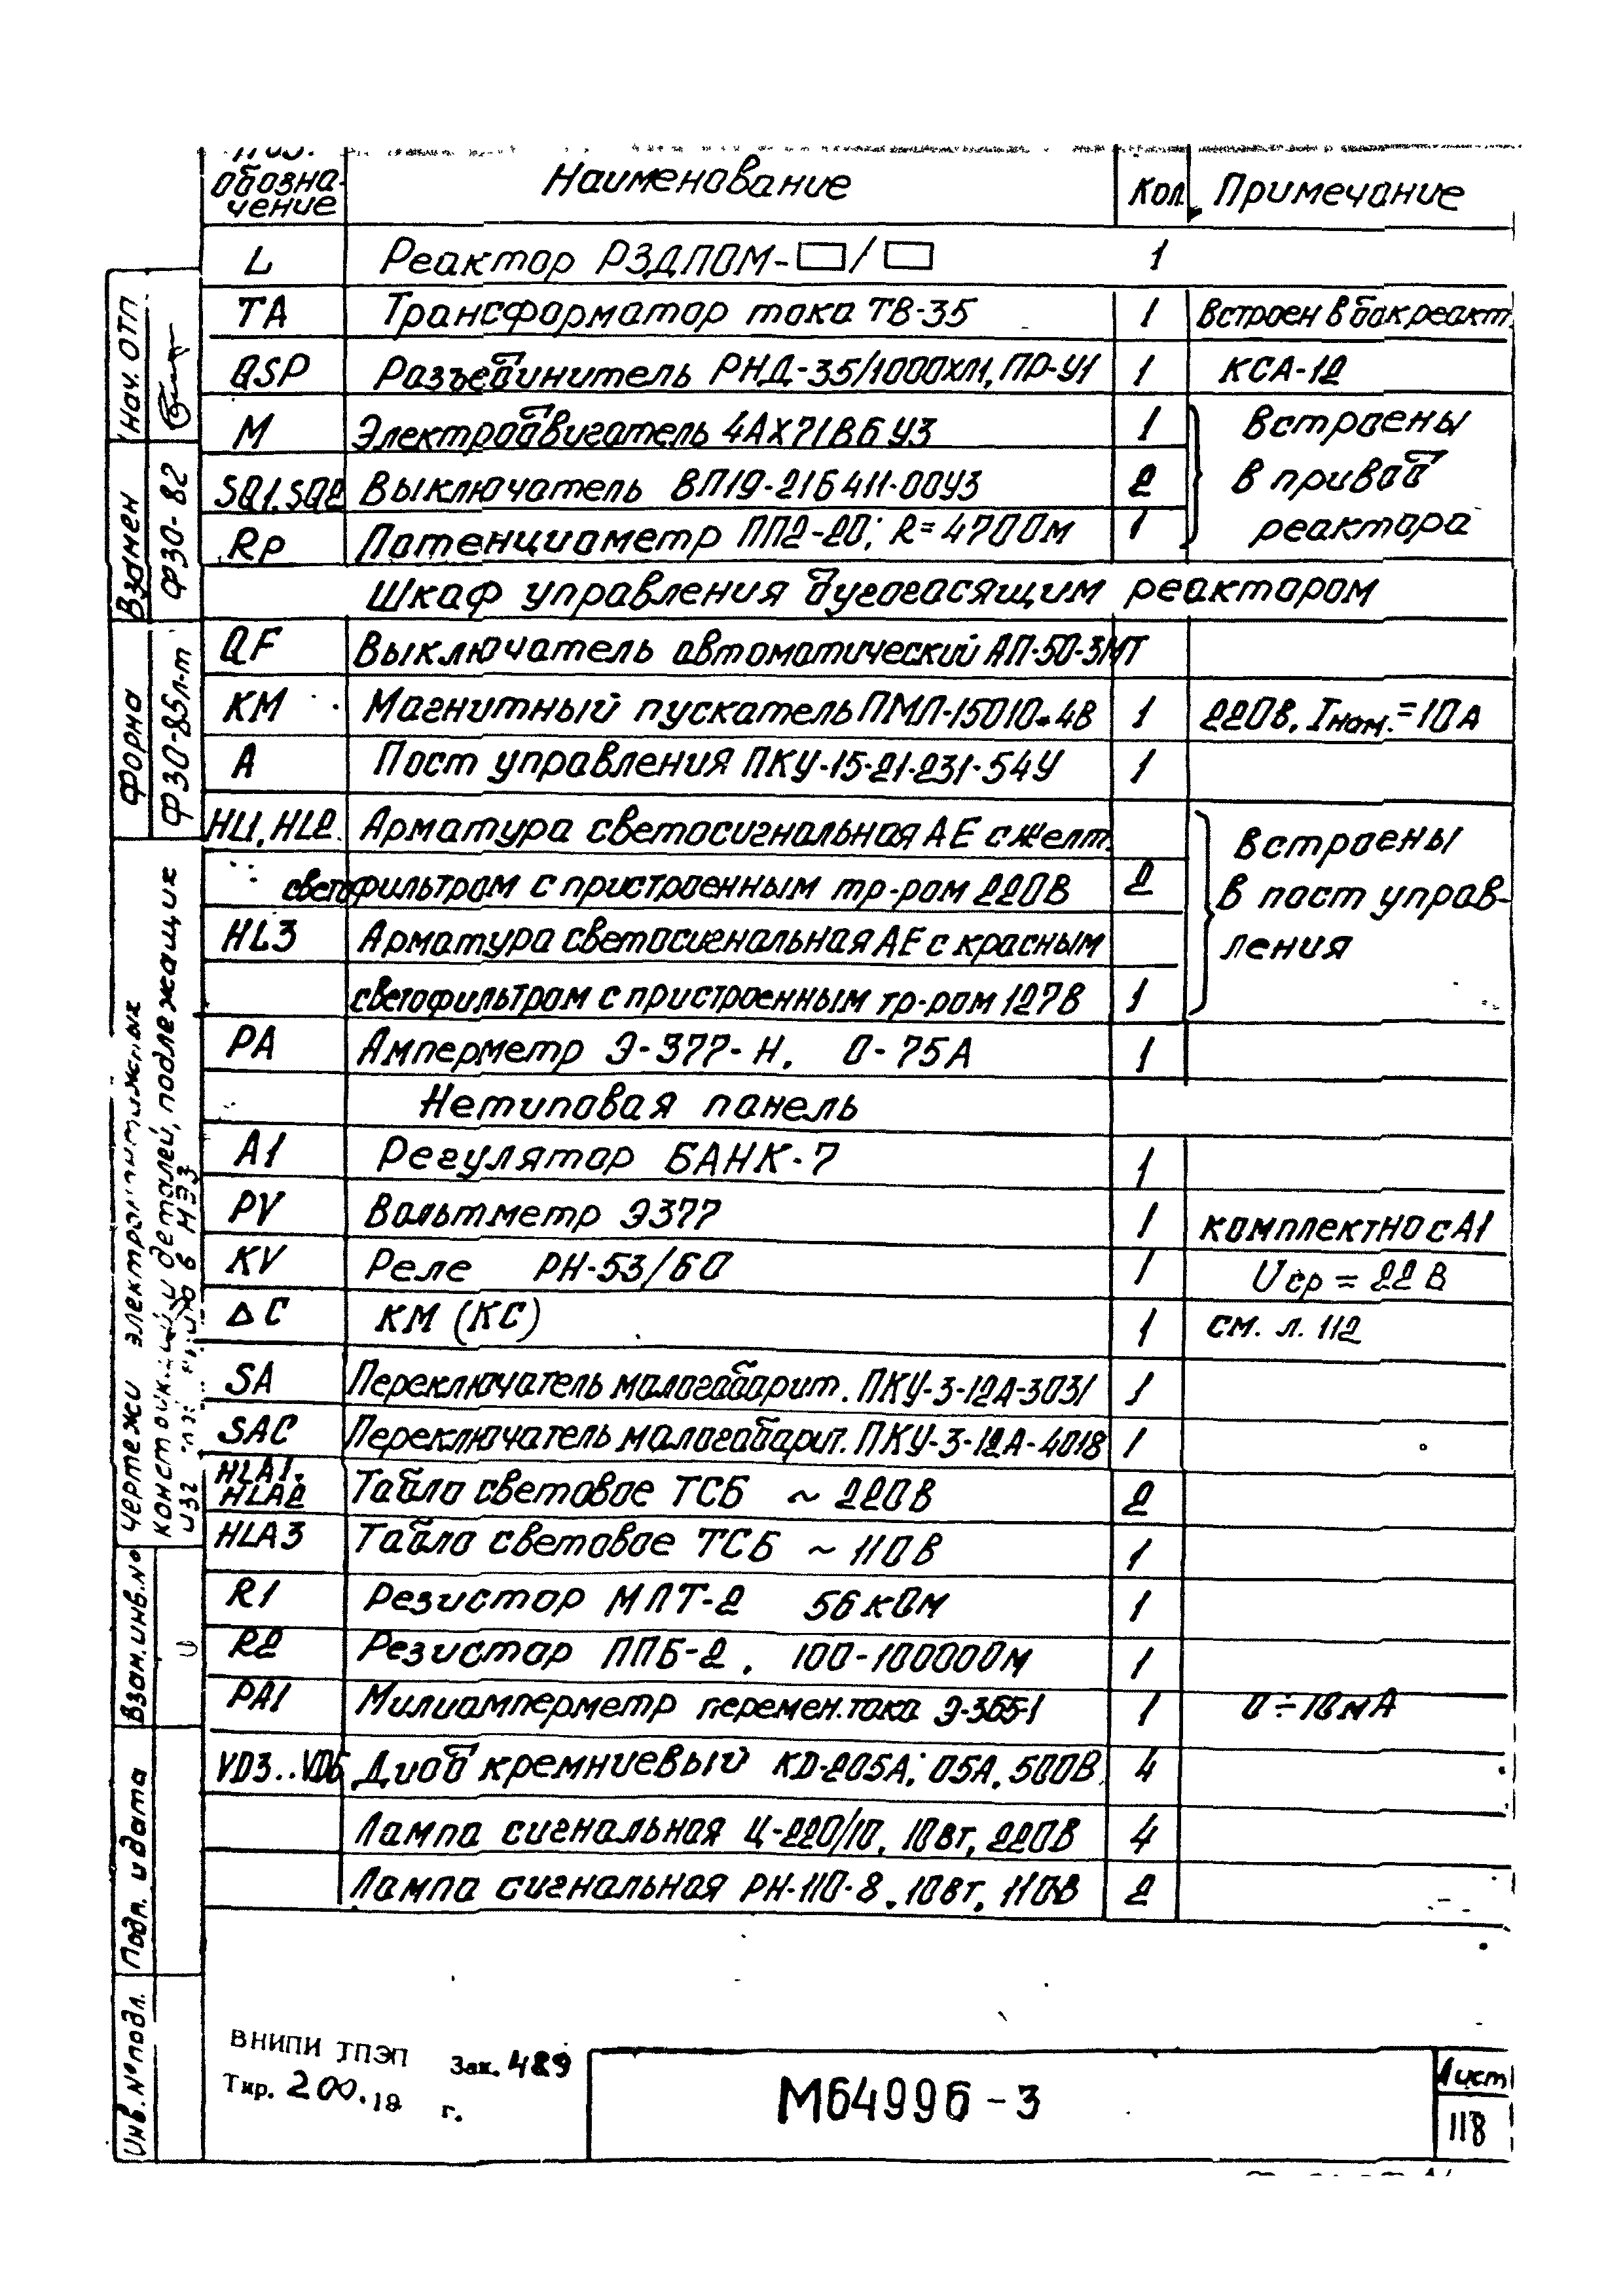 Поз.
обозна-
чение
Наименование
Кол.
Примечание
L Реактор РЗДПОМ-□/□ 1
TA Трансформатор тока ТВ-35 1 Встроен в бак реакт.
QSP Разъединитель РНД-35/1000ХЛ1, ПР-У1 1 КСА-12
M Электродвигатель 4АХ71В6У3 1 Встроены
SQ1, SQ2 Выключатель ВП19-21Б411-00У3 2 в привод
Rp Потенциометр ПП2-20; R=470Ом 1 реактора
Шкаф управления дугогасящим реактором
QF Выключатель автоматический АП-50-3МТ
KM Магнитный пускатель ПМЛ-15010*4В 1 220В, Iном.=10А
A Пост управления ПКУ-15-21-231-54У 1
HL1, HL2 Арматура светосигнальная АЕ с желт. Встроены
светофильтром с пристроенным тр-ром 220В 2 в пост управ-
HL3 Арматура светосигнальная АЕ с красным ления
светофильтром с пристроенным тр-ром 127В 1
PA Амперметр Э-377-Н, 0-75А 1
Нетиповая панель
A1 Регулятор БАНК-7 1
PV Вольтметр Э377 1 комплектно с А1
KV Реле РН-53/60 1 Uср = 22 В
ΔC КМ (КС) 1 см. л. 112
SA Переключатель малогабарит. ПКУ-3-12А-3031 1
SAC Переключатель малогабарит. ПКУ-3-12А-4018 1
HLA1,
HLA2 Табло световое ТСБ ~ 220В 2
HLA3 Табло световое ТСБ ~ 110В 1
R1 Резистор МЛТ-2 56 кОм 1
R2 Резистор ППБ-2, 100-10000Ом 1
PA1 Милиамперметр перемен.тока Э-365-1 1 0÷10мА
VD3..VD6 Диод кремниевый КД-205А; 05А, 500В 4
Лампа сигнальная Ц-220/10, 10вт, 220В 4
Лампа сигнальная РН-110-8, 10вт, 110В 2
Нач. ОТП
Взамен
Ф30-82
Форма
Ф30-85л-т
Чертежи электромонтажных
конструкций и деталей, подлежащих
изг в МЭЗ
Взам.инв.№
Подп. и дата
Инв.№подл.
ВНИПИ ТПЭП Зак. 489
Тир. 200. 19 г.
М64996-3
Лист
118